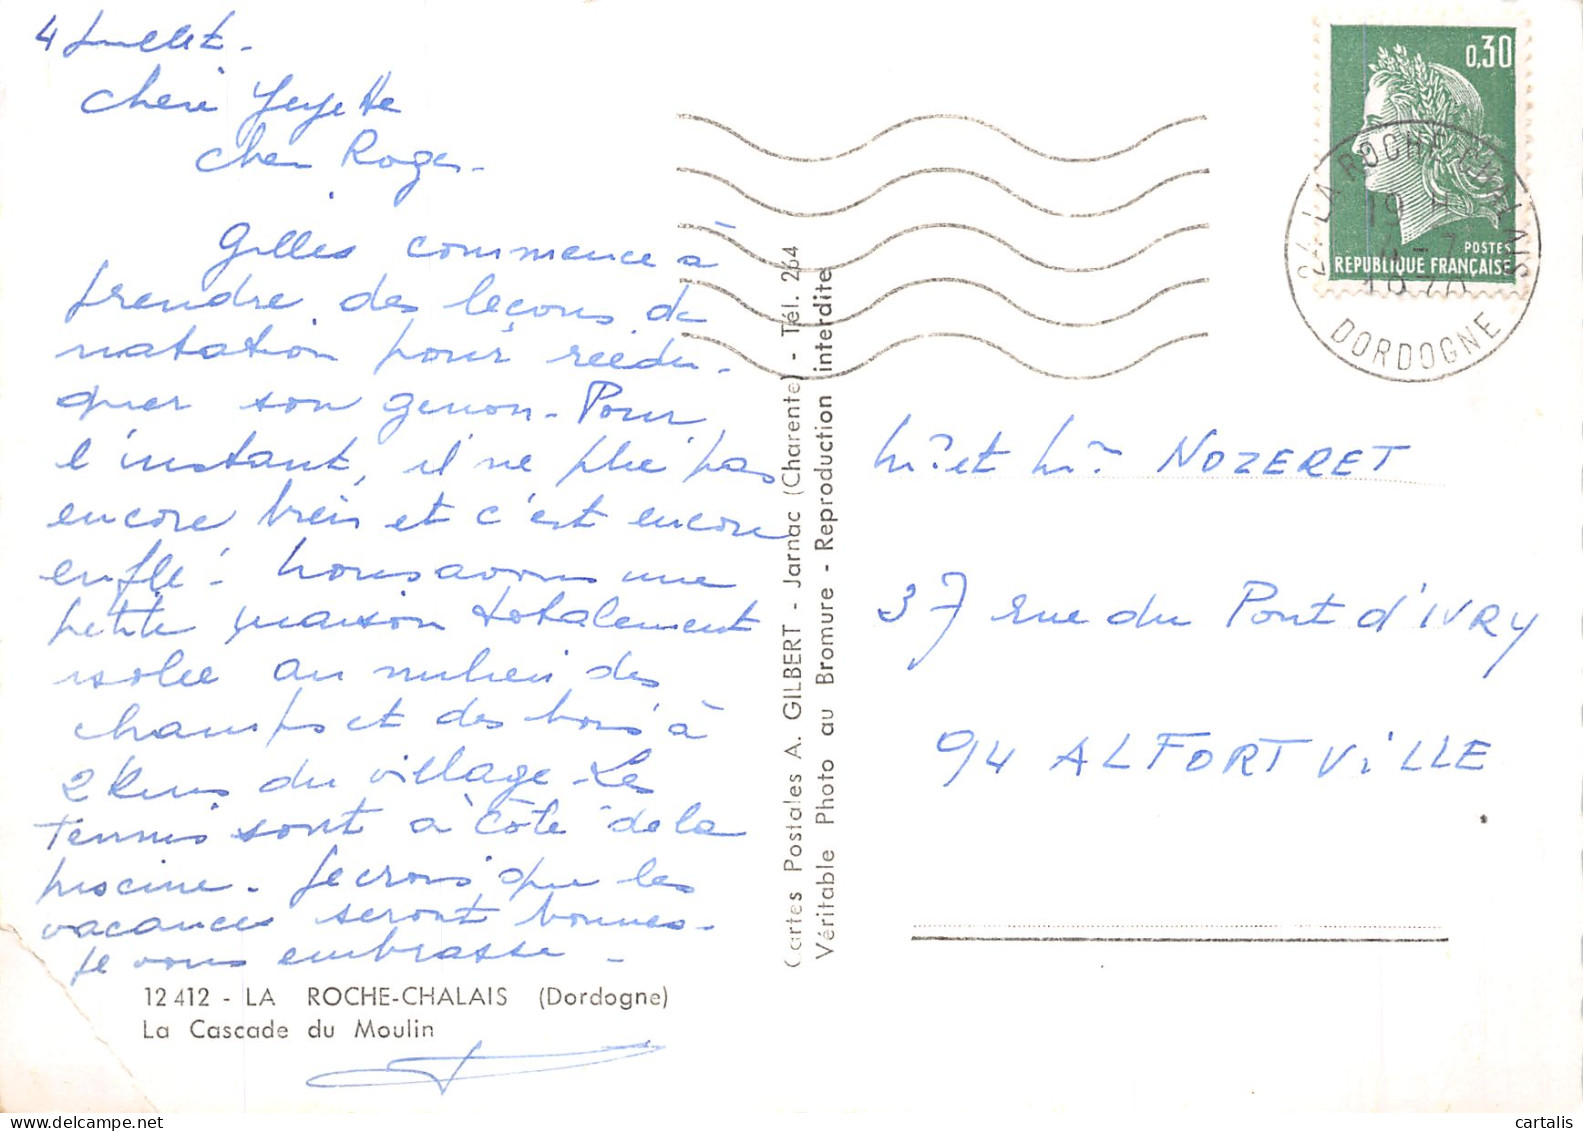 4 Juillet -
Cheri Yeyette
cher Roger -
Gilles commence à
prendre des leçons de
natation pour reedu-
quer son genou - Pour
l'instant, il ne plie pas
encore bien et c'est encore
enflé - Nous avons une
petite maison totalement
isolée au milieu des
champs et des bois à
2 kms du village - Les
Tennis sont à côté de la
piscine - Je crois que les
vacances seront bonnes -
Je vous embrasse -
12 412 - LA ROCHE-CHALAIS (Dordogne)
La Cascade du Moulin
Cartes Postales A. GILBERT - Jarnac (Charente) - Tél. 264
Véritable Photo au Bromure - Reproduction interdite
0,30
POSTES
REPUBLIQUE FRANÇAISE
24 LA ROCHE CHALAIS
19 H
4 - 7
1970
DORDOGNE
Mr et Mme NOZERET
37 rue du Pont d'IVRY
94 ALFORTViLLE
cartalis